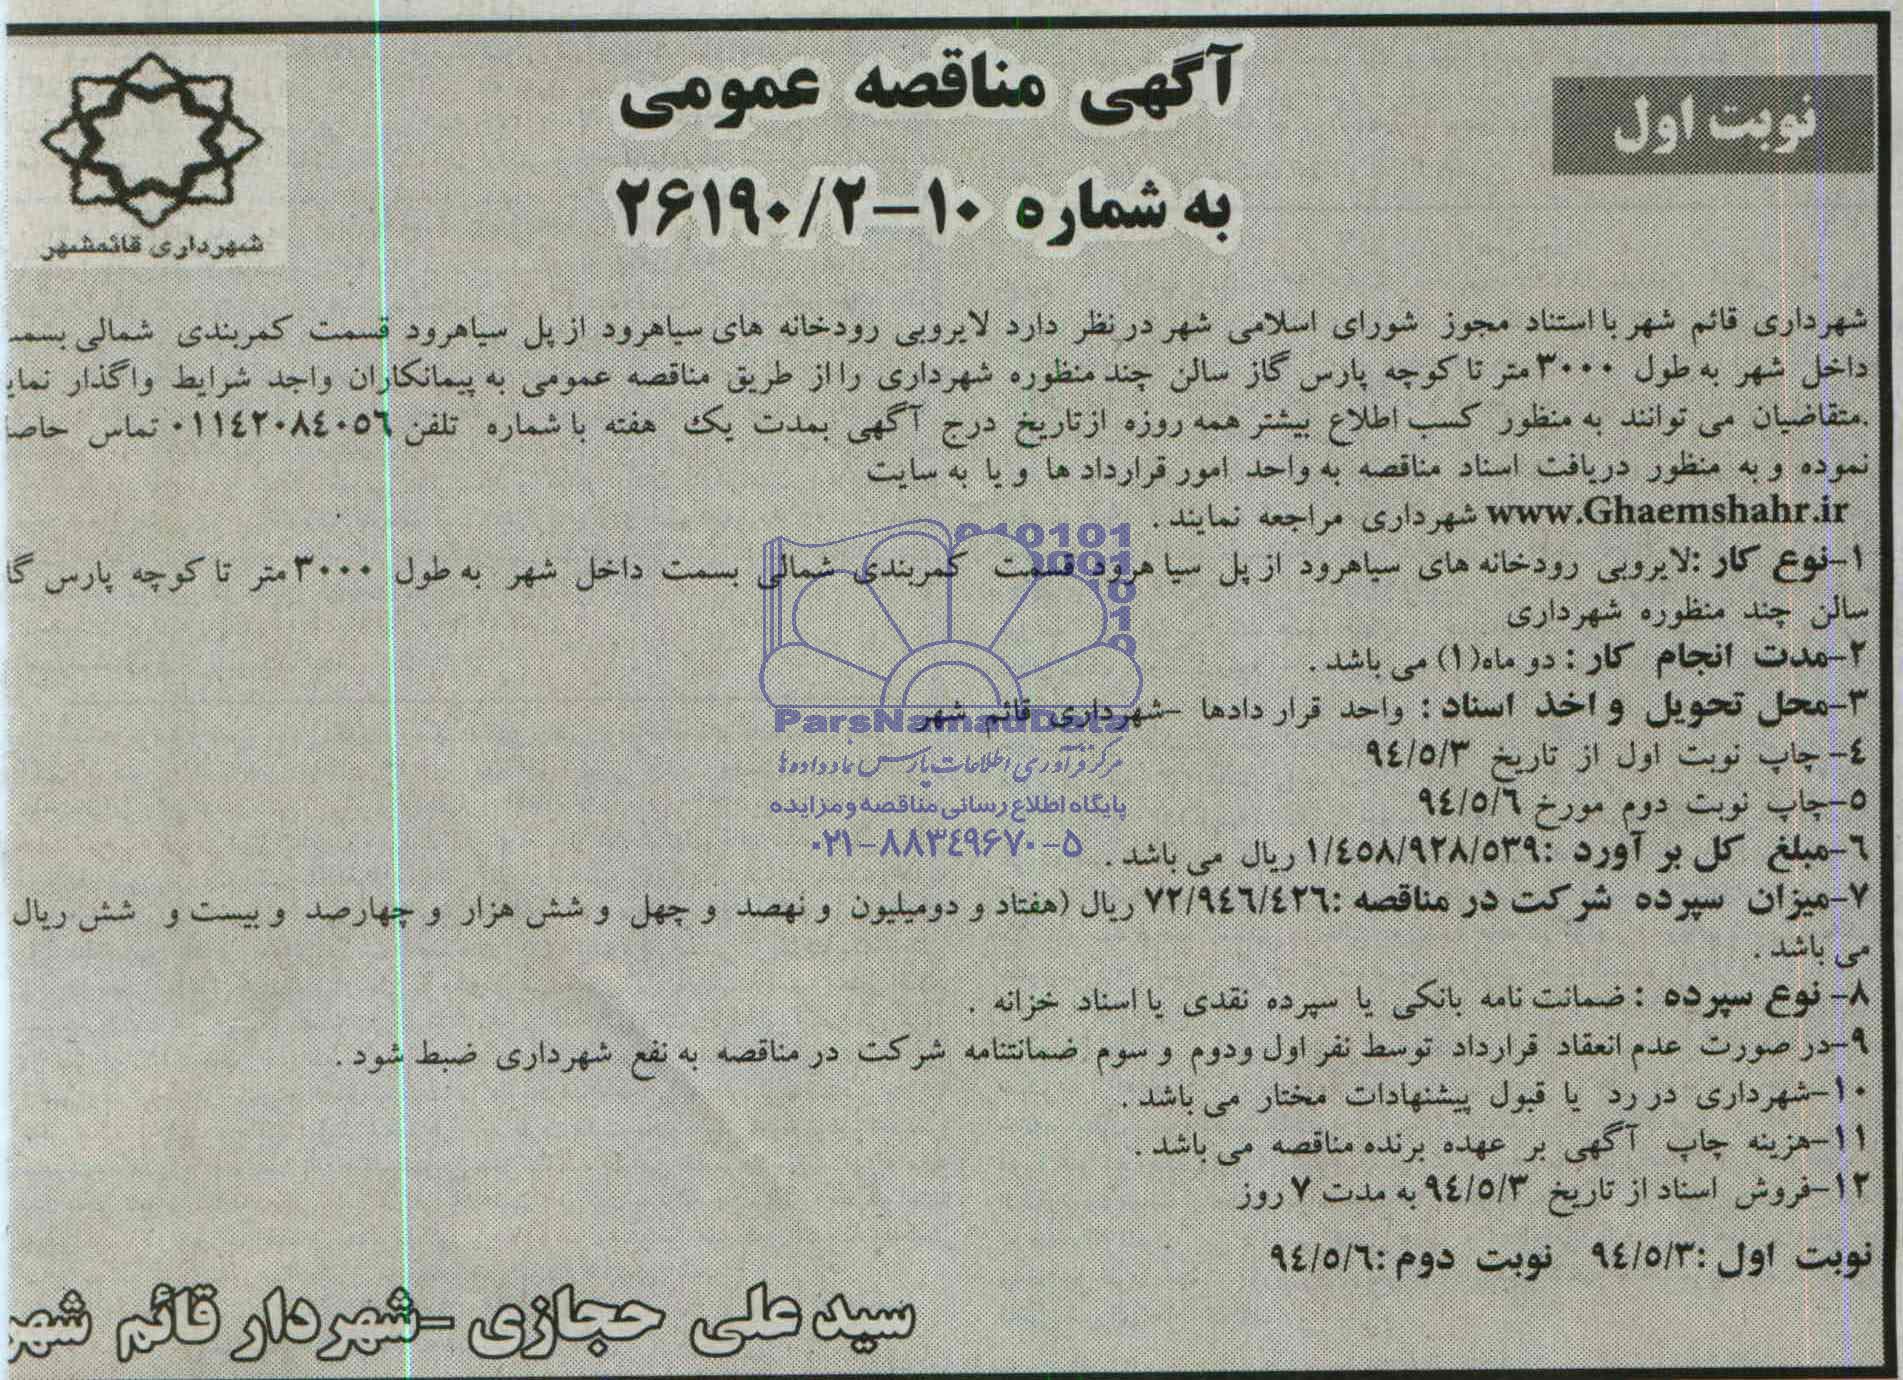 نوبت اول
آگهی مناقصه عمومی
به شماره ۱۰-۲۶۱۹۰/۲
شهرداری قائمشهر
شهرداری قائم شهر با استناد مجوز شورای اسلامی شهر در نظر دارد لایروبی رودخانه های سیاهرود از پل سیاهرود قسمت کمربندی شمالی
داخل شهر به طول ۳۰۰۰ متر تا کوچه پارس گاز سالن چند منظوره شهرداری را از طریق مناقصه عمومی به پیمانکاران واجد شرایط واگذار
.متقاضیان می توانند به منظور کسب اطلاع بیشتر همه روزه ازتاریخ درج آگهی بمدت یک هفته با شماره تلفن ۰۱۱٤۲۰۸٤۰۵٦ تماس
نموده و به منظور دریافت اسناد مناقصه به واحد امور قرارداد ها و یا به سایت
www.Ghaemshahr.ir شهرداری مراجعه نمایند .
۱-نوع کار :لایروبی رودخانه های سیاهرود از پل سیا هرود قسمت کمربندی شمالی بسمت داخل شهر به طول ۳۰۰۰ متر تا کوچه پارس
سالن چند منظوره شهرداری
۲-مدت انجام کار : دو ماه(۱) می باشد .
۳-محل تحویل و اخذ اسناد : واحد قرار دادها -شهرداری قائم شهر
٤- چاپ نوبت اول از تاریخ ۹٤/۵/۳
۵-چاپ نوبت دوم مورخ ۹٤/۵/٦
٦-مبلغ کل بر آورد :۱/٤۵۸/۹۲۸/۵۳۹ ریال می باشد .
۷-میزان سپرده شرکت در مناقصه :۷۲/۹٤٦/٤۲٦ ریال (هفتاد و دومیلیون و نهصد و چهل و شش هزار و چهارصد و بیست و شش ریال
می باشد .
۸- نوع سپرده : ضمانت نامه بانکی یا سپرده نقدی یا اسناد خزانه .
۹-در صورت عدم انعقاد قرارداد توسط نفر اول ودوم و سوم ضمانتنامه شرکت در مناقصه به نفع شهرداری ضبط شود .
۱۰-شهرداری در رد یا قبول پیشنهادات مختار می باشد .
۱۱-هزینه چاپ آگهی بر عهده برنده مناقصه می باشد .
۱۲-فروش اسناد از تاریخ ۹٤/۵/۳ به مدت ۷ روز
نوبت اول :۹٤/۵/۳ نوبت دوم :۹٤/۵/٦
سید علی حجازی -شهردار قائم شهر
ParsNamadData
مرکز فرآوری اطلاعات پارس نماد داده ها
پایگاه اطلاع رسانی مناقصه و مزایده
۰۲۱-۸۸۳٤۹۶۷۰-۵